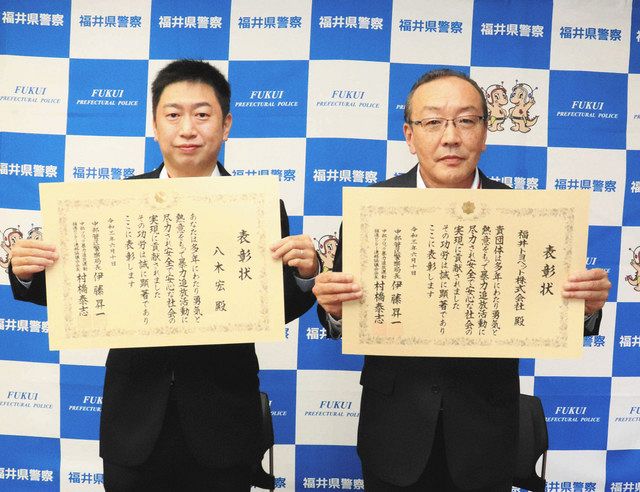 福井県警察
福井県警察
福井県警察
福井県警察
FUKUI
PREFECTURAL POLICE
FUKUI
PREFECTURAL POLICE
FUKUI
PREFECTURAL POLICE
FUKUI
PREFECTURAL POLICE
福井県警察
福井県警察
福井県警察
福井県警察
表彰状
八木宏 殿
あなたは多年にわたり勇気と
熱意をもって暴力追放活動に
尽力され安全で安心な社会の
実現に貢献されました
その功労は誠に顕著であり
ここに表彰します
令和三年六月十日
中部管区警察局長 伊藤昇一
村橋泰志
表彰状
福井トヨペット株式会社 殿
貴団体は多年にわたり勇気と
熱意をもって暴力追放活動に
尽力され安全で安心な社会の
実現に貢献されました
その功労は誠に顕著であり
ここに表彰します
令和三年六月十日
中部管区警察局長 伊藤昇一
村橋泰志
福井県警察
福井県警察
FUKUI
PREFECTURAL POLICE
FUKUI
PREFECTURAL POLICE
FUKUI
PREFECTURAL POLICE
福井県警察
福井県警察
福井県警察